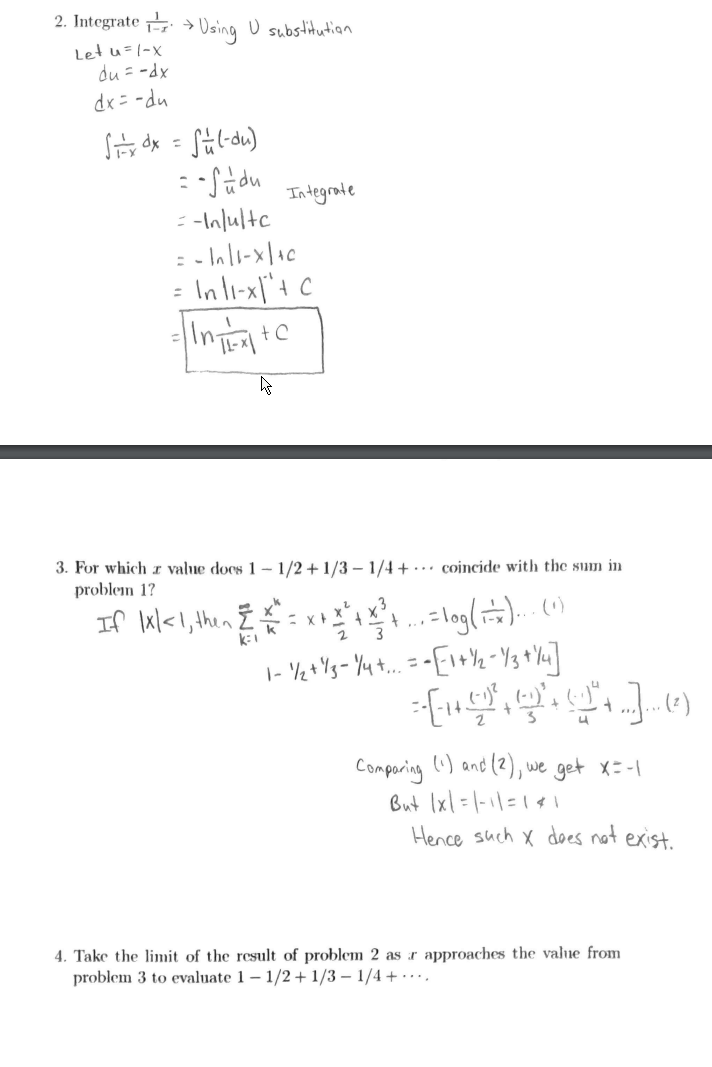 2. Integrate 1/(1-x). → Using U substitution
Let u = 1-x
du = -dx
dx = -du
∫ 1/(1-x) dx = ∫ 1/u (-du)
= - ∫ 1/u du Integrate
= -ln|u|+c
= - ln|1-x|+c
= ln|1-x|⁻¹ + C
= ln 1/|1-x| + C
3. For which x value does 1 − 1/2 + 1/3 − 1/4 + ··· coincide with the sum in
problem 1?
If |x|<1, then ∞Σk=1 x^k/k = x + x²/2 + x³/3 + ... = log(1/(1-x)) ... (1)
1 - 1/2 + 1/3 - 1/4 + ... = -[-1 + 1/2 - 1/3 + 1/4]
= -[-1 + (-1)²/2 + (-1)³/3 + (-1)⁴/4 + ...] ... (2)
Comparing (1) and (2), we get x = -1
But |x| = |-1| = 1 ≮ 1
Hence such x does not exist.
4. Take the limit of the result of problem 2 as x approaches the value from
problem 3 to evaluate 1 − 1/2 + 1/3 − 1/4 + ···.